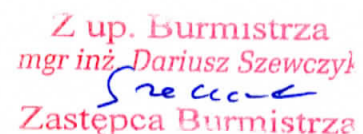 Z up. Burmistrza
mgr inż. Dariusz Szewczyk
Zastępca Burmistrza